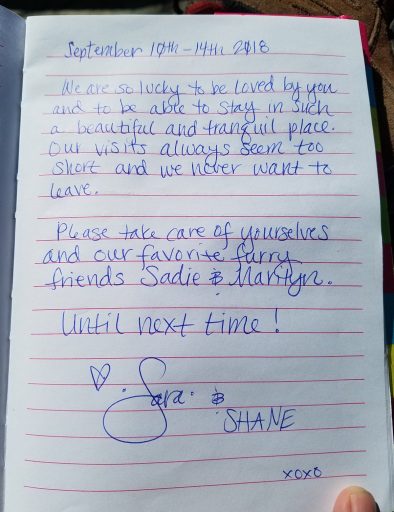 September 10th - 14th 2018
We are so lucky to be loved by you
and to be able to stay in such
a beautiful and tranquil place.
Our visits always seem too
short and we never want to
leave.
Please take care of yourselves
and our favorite furry
friends Sadie & Marilyn.
Until next time!
♡ Sara &
SHANE
xoxo